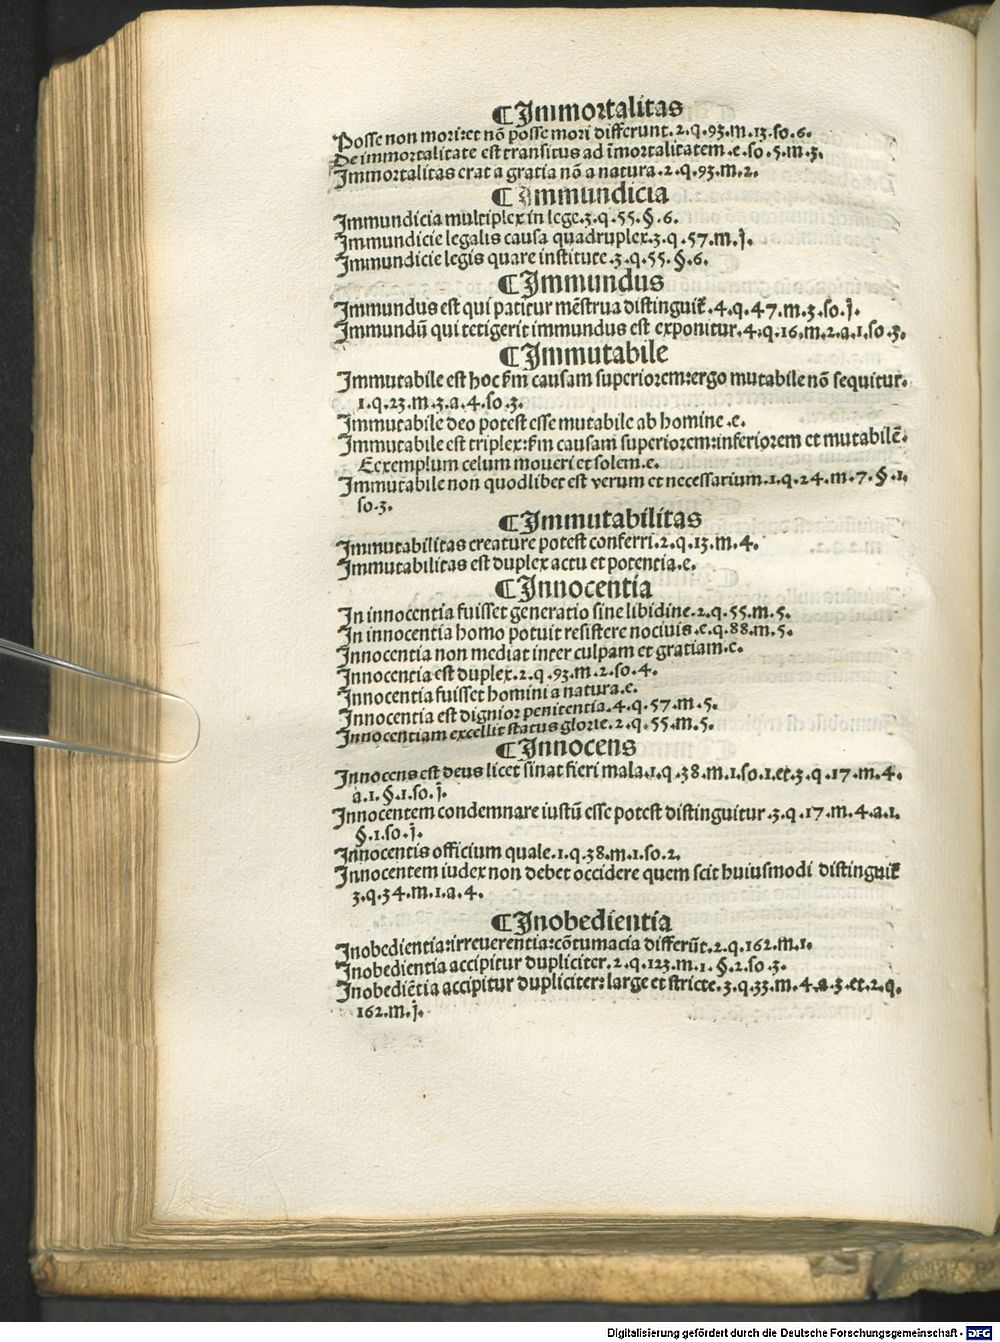 ¶Immortalitas
Posse non mori:et nõ posse mori differunt.2.q.93.m.13.so.6.
De immortalitate est transitus ad ĩmortalitatem.e.so.5.m.3.
Immortalitas erat a gratia nõ a natura.2.q.93.m.2.
¶Immundicia
Immundicia multiplex in lege.3.q.55.§.6.
Immundicie legalis causa quadruplex.3.q.57.m.j.
Immundicie legis quare institute.3.q.55.§.6.
¶Immundus
Immundus est qui patitur mẽstrua distinguit̃.4.q.47.m.3.so.j.
Immundũ qui tetigerit immundus est exponitur.4.q.16.m.2.a.1.so.3.
¶Immutabile
Immutabile est hoc fm̃ causam superiorem:ergo mutabile nõ sequitur.
1.q.23.m.3.a.4.so.3.
Immutabile deo potest esse mutabile ab homine.e.
Immutabile est triplex:fm̃ causam superiorem:inferiorem et mutabilẽ.
Ecxemplum celum moueri et solem.e.
Immutabile non quodlibet est verum et necessarium.1.q.24.m.7.§.1.
so.3.
¶Immutabilitas
Immutabilitas creature potest conferri.2.q.13.m.4.
Immutabilitas est duplex actu et potentia.e.
¶Innocentia
In innocentia fuisset generatio sine libidine.2.q.55.m.5.
In innocentia homo potuit resistere nociuis.e.q.88.m.5.
Innocentia non mediat inter culpam et gratiam.e.
Innocentia est duplex.2.q.93.m.2.so.4.
Innocentia fuisset homini a natura.e.
Innocentia est dignior penitentia.4.q.57.m.5.
Innocentiam excellit status glorie.2.q.55.m.5.
¶Innocens
Innocens est deus licet sinat fieri mala.1.q.38.m.1.so.1.et.3.q.17.m.4.
a.1.§.1.so.j.
Innocentem condemnare iustũ esse potest distinguitur.3.q.17.m.4.a.1.
§.1.so.j.
Innocentis officium quale.1.q.38.m.1.so.2.
Innocentem iudex non debet occidere quem scit huiusmodi distinguit̃
3.q.34.m.1.a.4.
¶Inobedientia
Inobedientia:irreuerentia:cõtumacia differũt.2.q.162.m.1.
Inobedientia accipitur dupliciter.2.q.123.m.1.§.2.so.3.
Inobediẽtia accipitur dupliciter:large et stricte.3.q.33.m.4.a.3.et.2.q.
162.m.j.
Digitalisierung gefördert durch die Deutsche Forschungsgemeinschaft - DFG